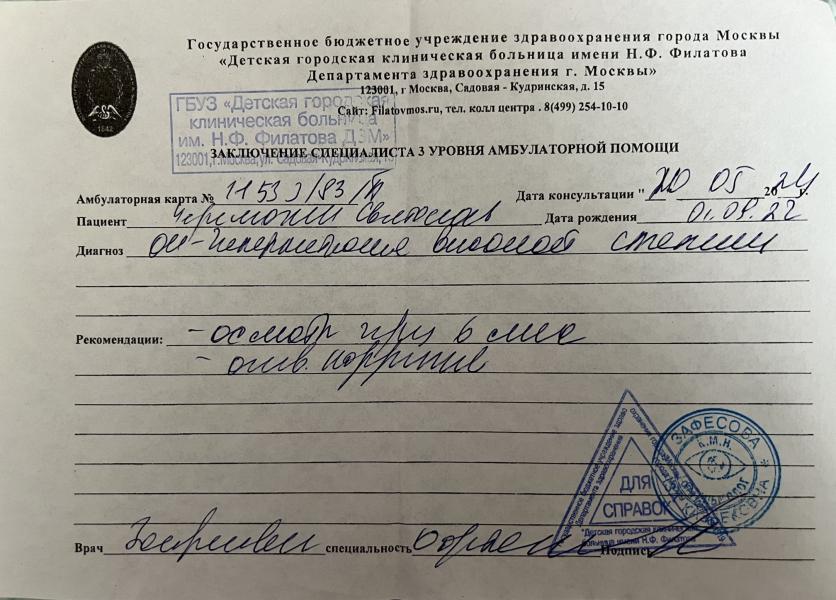 Государственное бюджетное учреждение здравоохранения города Москвы
«Детская городская клиническая больница имени Н.Ф. Филатова
Департамента здравоохранения г. Москвы»
123001, г Москва, Садовая - Кудринская, д. 15
Сайт: Filatovmos.ru, тел. колл центра . 8(499) 254-10-10
ГБУЗ «Детская городская
клиническая больница
им. Н.Ф. Филатова ДЗМ»
123001, г.Москва, ул. Садовая-Кудринская, 15
ЗАКЛЮЧЕНИЕ СПЕЦИАЛИСТА 3 УРОВНЯ АМБУЛАТОРНОЙ ПОМОЩИ
Амбулаторная карта № Дата консультации " 20 05 20 24 г.
Пациент Дата рождения 01.09.22
Диагноз ОИ - Гиперметропия высокой степени
Рекомендации: - осмотр чрез 6 мес
- очк. коррекция
ЗАФЕСОВА
К.М.Н.
ДЛЯ
СПРАВОК
"Детская городская клиническая
больница имени Н.Ф. Филатова
Врач специальность Подпись
1842